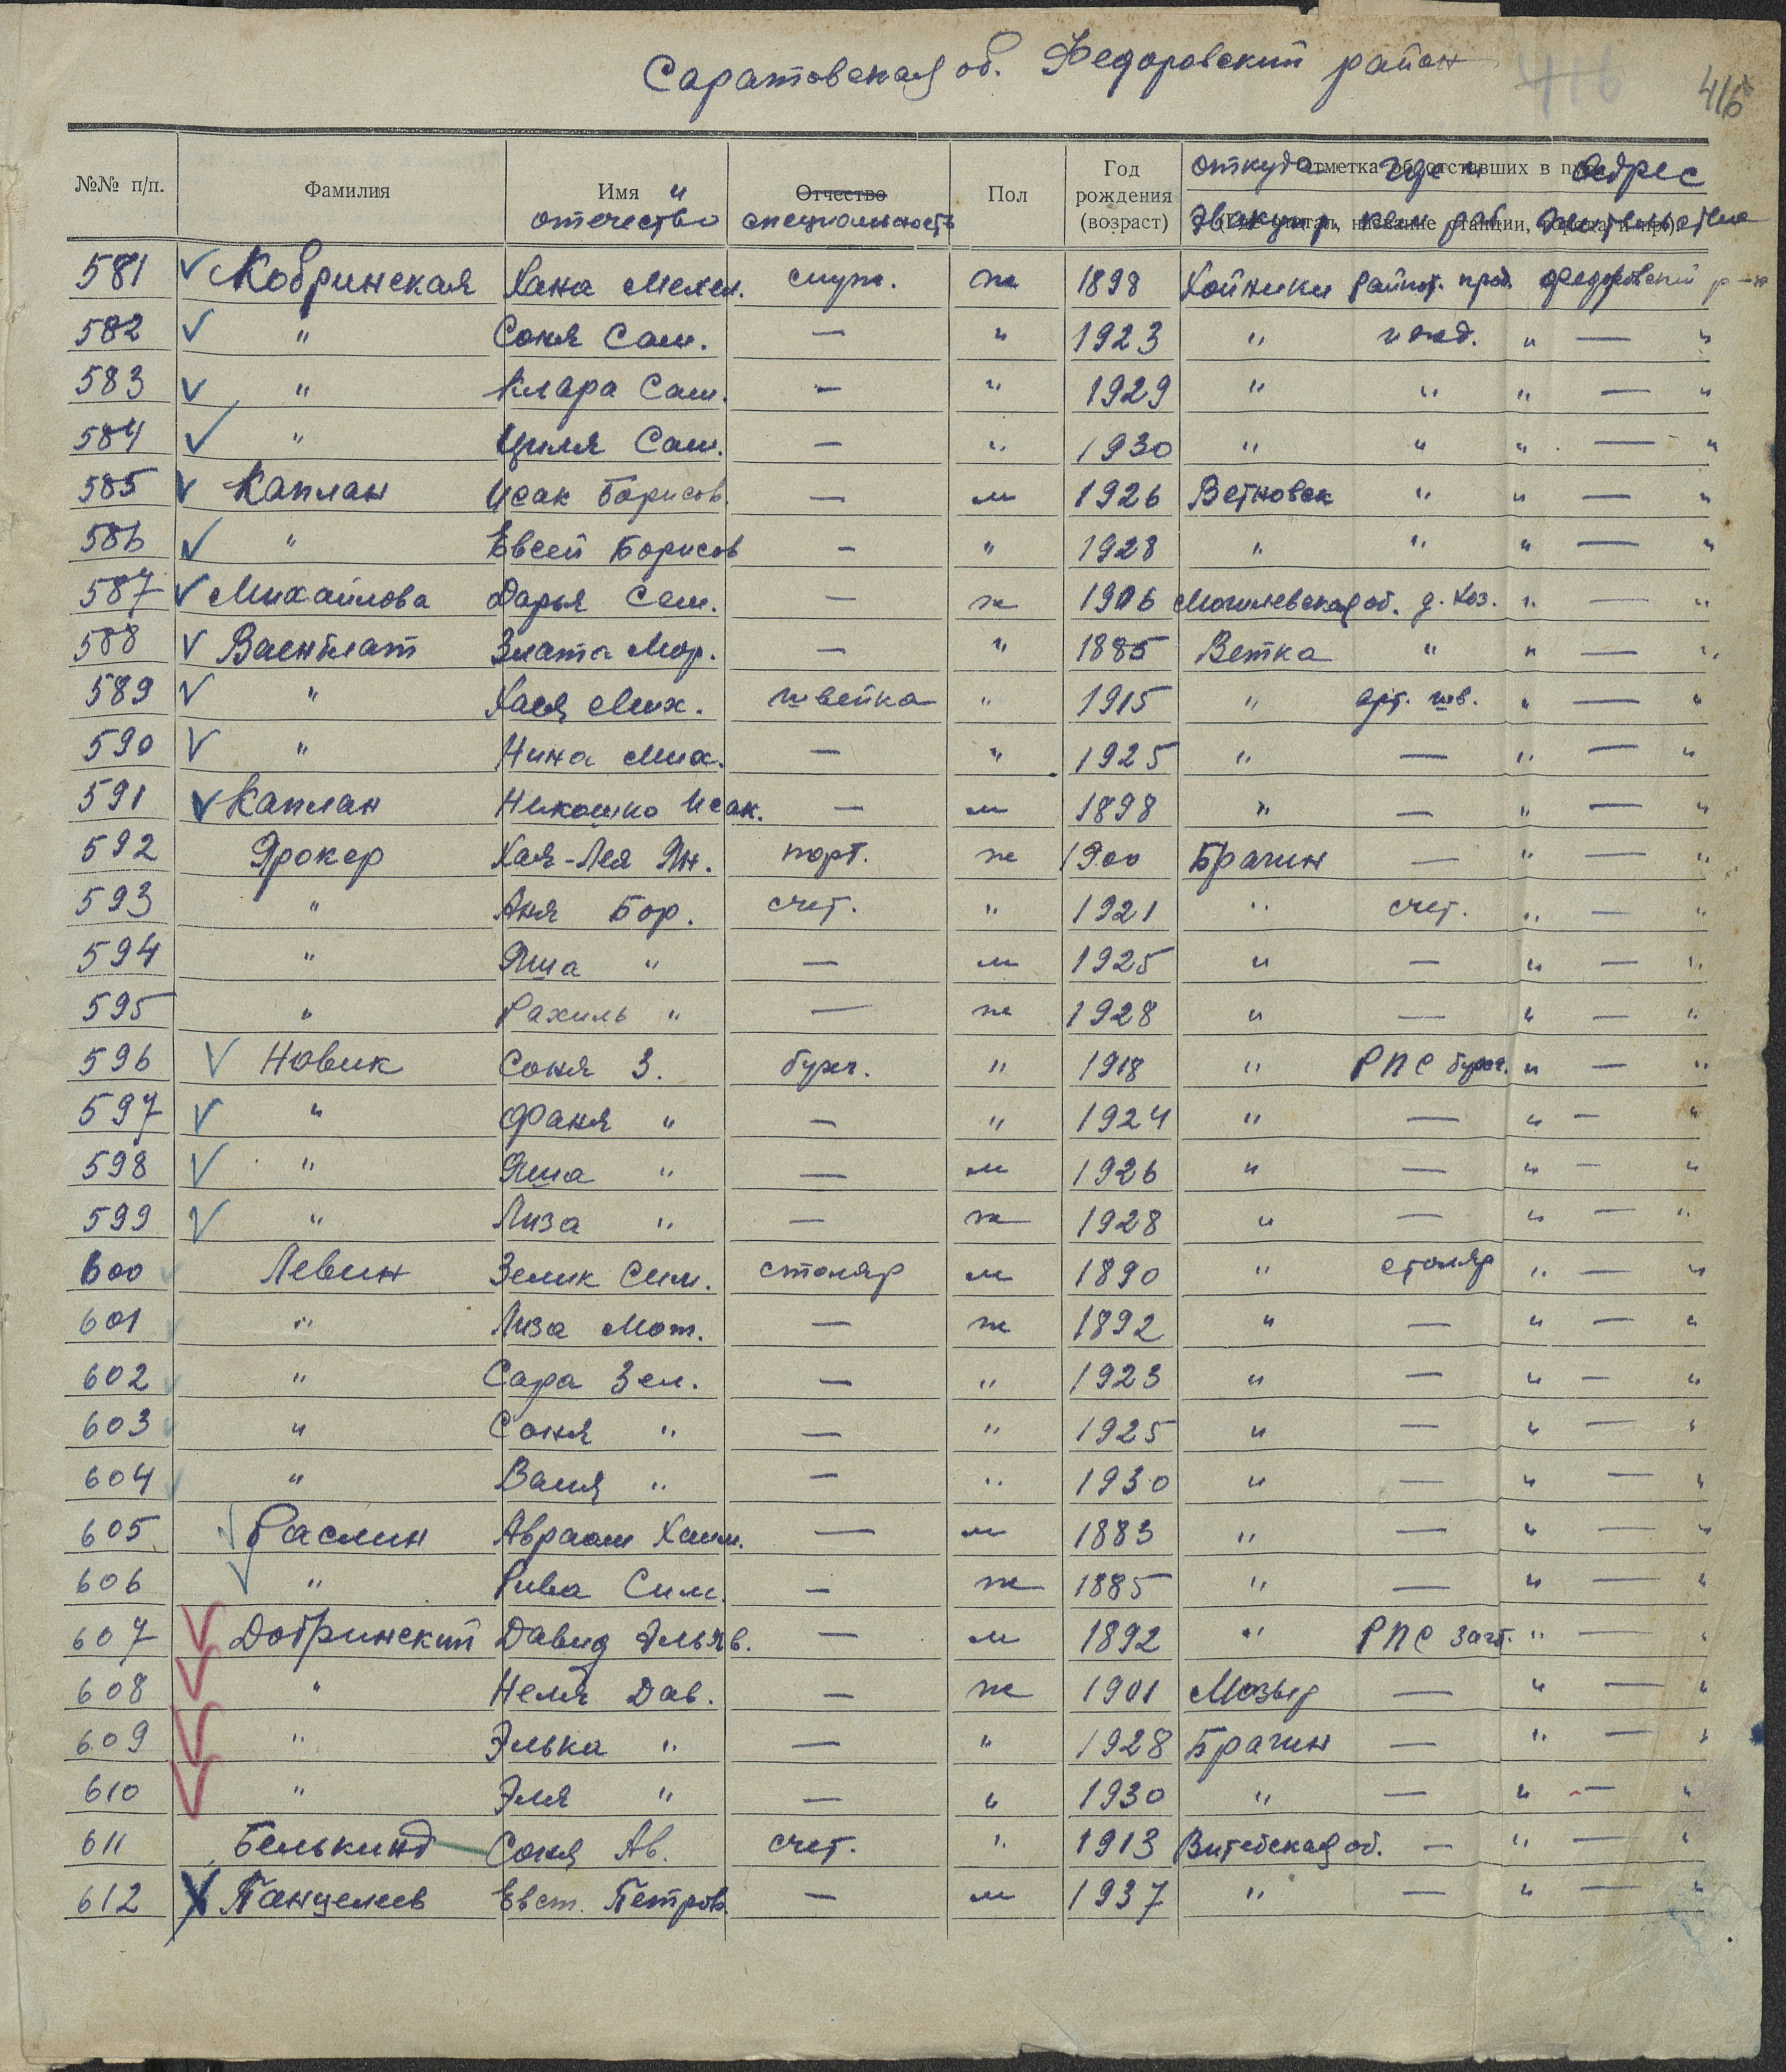 Саратовская об. Федоровский район
416
416
№№ п/п. Фамилия Имя и отчество Отчество специальность Пол Год рождения (возраст) откуда эвакуир. где и кем раб. Адрес жительства
Отметка об отставших в пути
581 Кобринская Хана Мехел. служ. ж 1898 Хойники райпот. прод. Федоровский р-н
582 " Соня Сам. — " 1923 " ижд. " — "
583 " Клара Сам. — " 1929 " " " — "
584 " Циля Сам. — " 1930 " " " — "
585 Каплан Исак Борисов. — м 1926 " " — "
586 " Евсей Борисов — " 1928 " " " — "
587 Михайлова Дарья Сем. — ж 1906 Могилевская об. д. хоз. " — "
588 Злата Мор. — " 1885 Ветка " " — "
589 " Хася Мих. швейка " 1915 " арт. шв. " — "
590 " Нина Мих. — " 1925 " — " — "
591 Каплан Исак. — м 1898 " — " — "
592 Прокер Хая-Лея Ян. порт. ж 1900 Брагин — " — "
593 " Аня Бор. счет. " 1921 " счет. " — "
594 " Яша " — м 1925 " — " — "
595 " Рахиль " — ж 1928 " — " — "
596 Новик Соня З. бухг. " 1918 " РПС бухг. " — "
597 " Фаня " — " 1924 " — " — "
598 " Яша " — м 1926 " — " — "
599 " Лиза " — ж 1928 " — " — "
600 Левин Зелик Сим. столяр м 1890 " столяр " — "
601 " Лиза Мот. — ж 1892 " — " — "
602 " Сара Зел. — " 1923 " — " — "
603 " Соня " — " 1925 " — " — "
604 " Ваня " — " 1930 " — " — "
605 Раслин Авраам Хаим. — м 1883 " — " — "
606 " Рива Сим. — ж 1885 " — " — "
607 Добринский Давид Эльяв. — м 1892 " РПС загт. " — "
608 " Неля Дав. — ж 1901 Мозыр — " — "
609 " Элька " — " 1928 Брагин — " — "
610 " Эля " — " 1930 " — " — "
611 Белькинд Соня Ав. счет. " 1913 Витебская об. — " — "
612 Панцелеев Евст. Петров. — м 1937 " — " — "